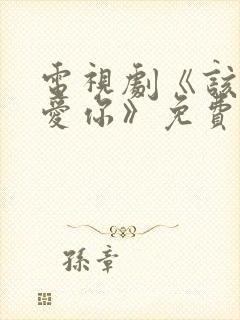 電視劇《該
愛你》免費
孫章